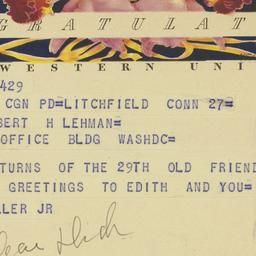 GRATULAT
WESTERN UNI
429
CGN PD=LITCHFIELD CONN 27=
BERT H LEHMAN=
OFFICE BLDG WASHDC=
TURNS OF THE 29TH OLD FRIEND
GREETINGS TO EDITH AND YOU=
LLER JR
Dear Dick